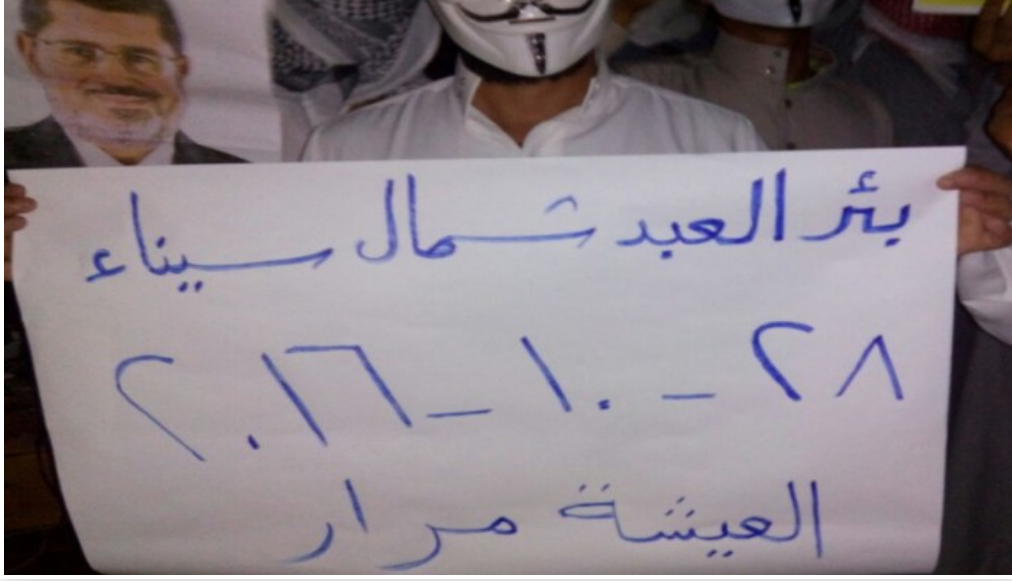 بئر العبد شمال سيناء
٢٨ - ١٠ - ٢٠١٦
العيشة مرار